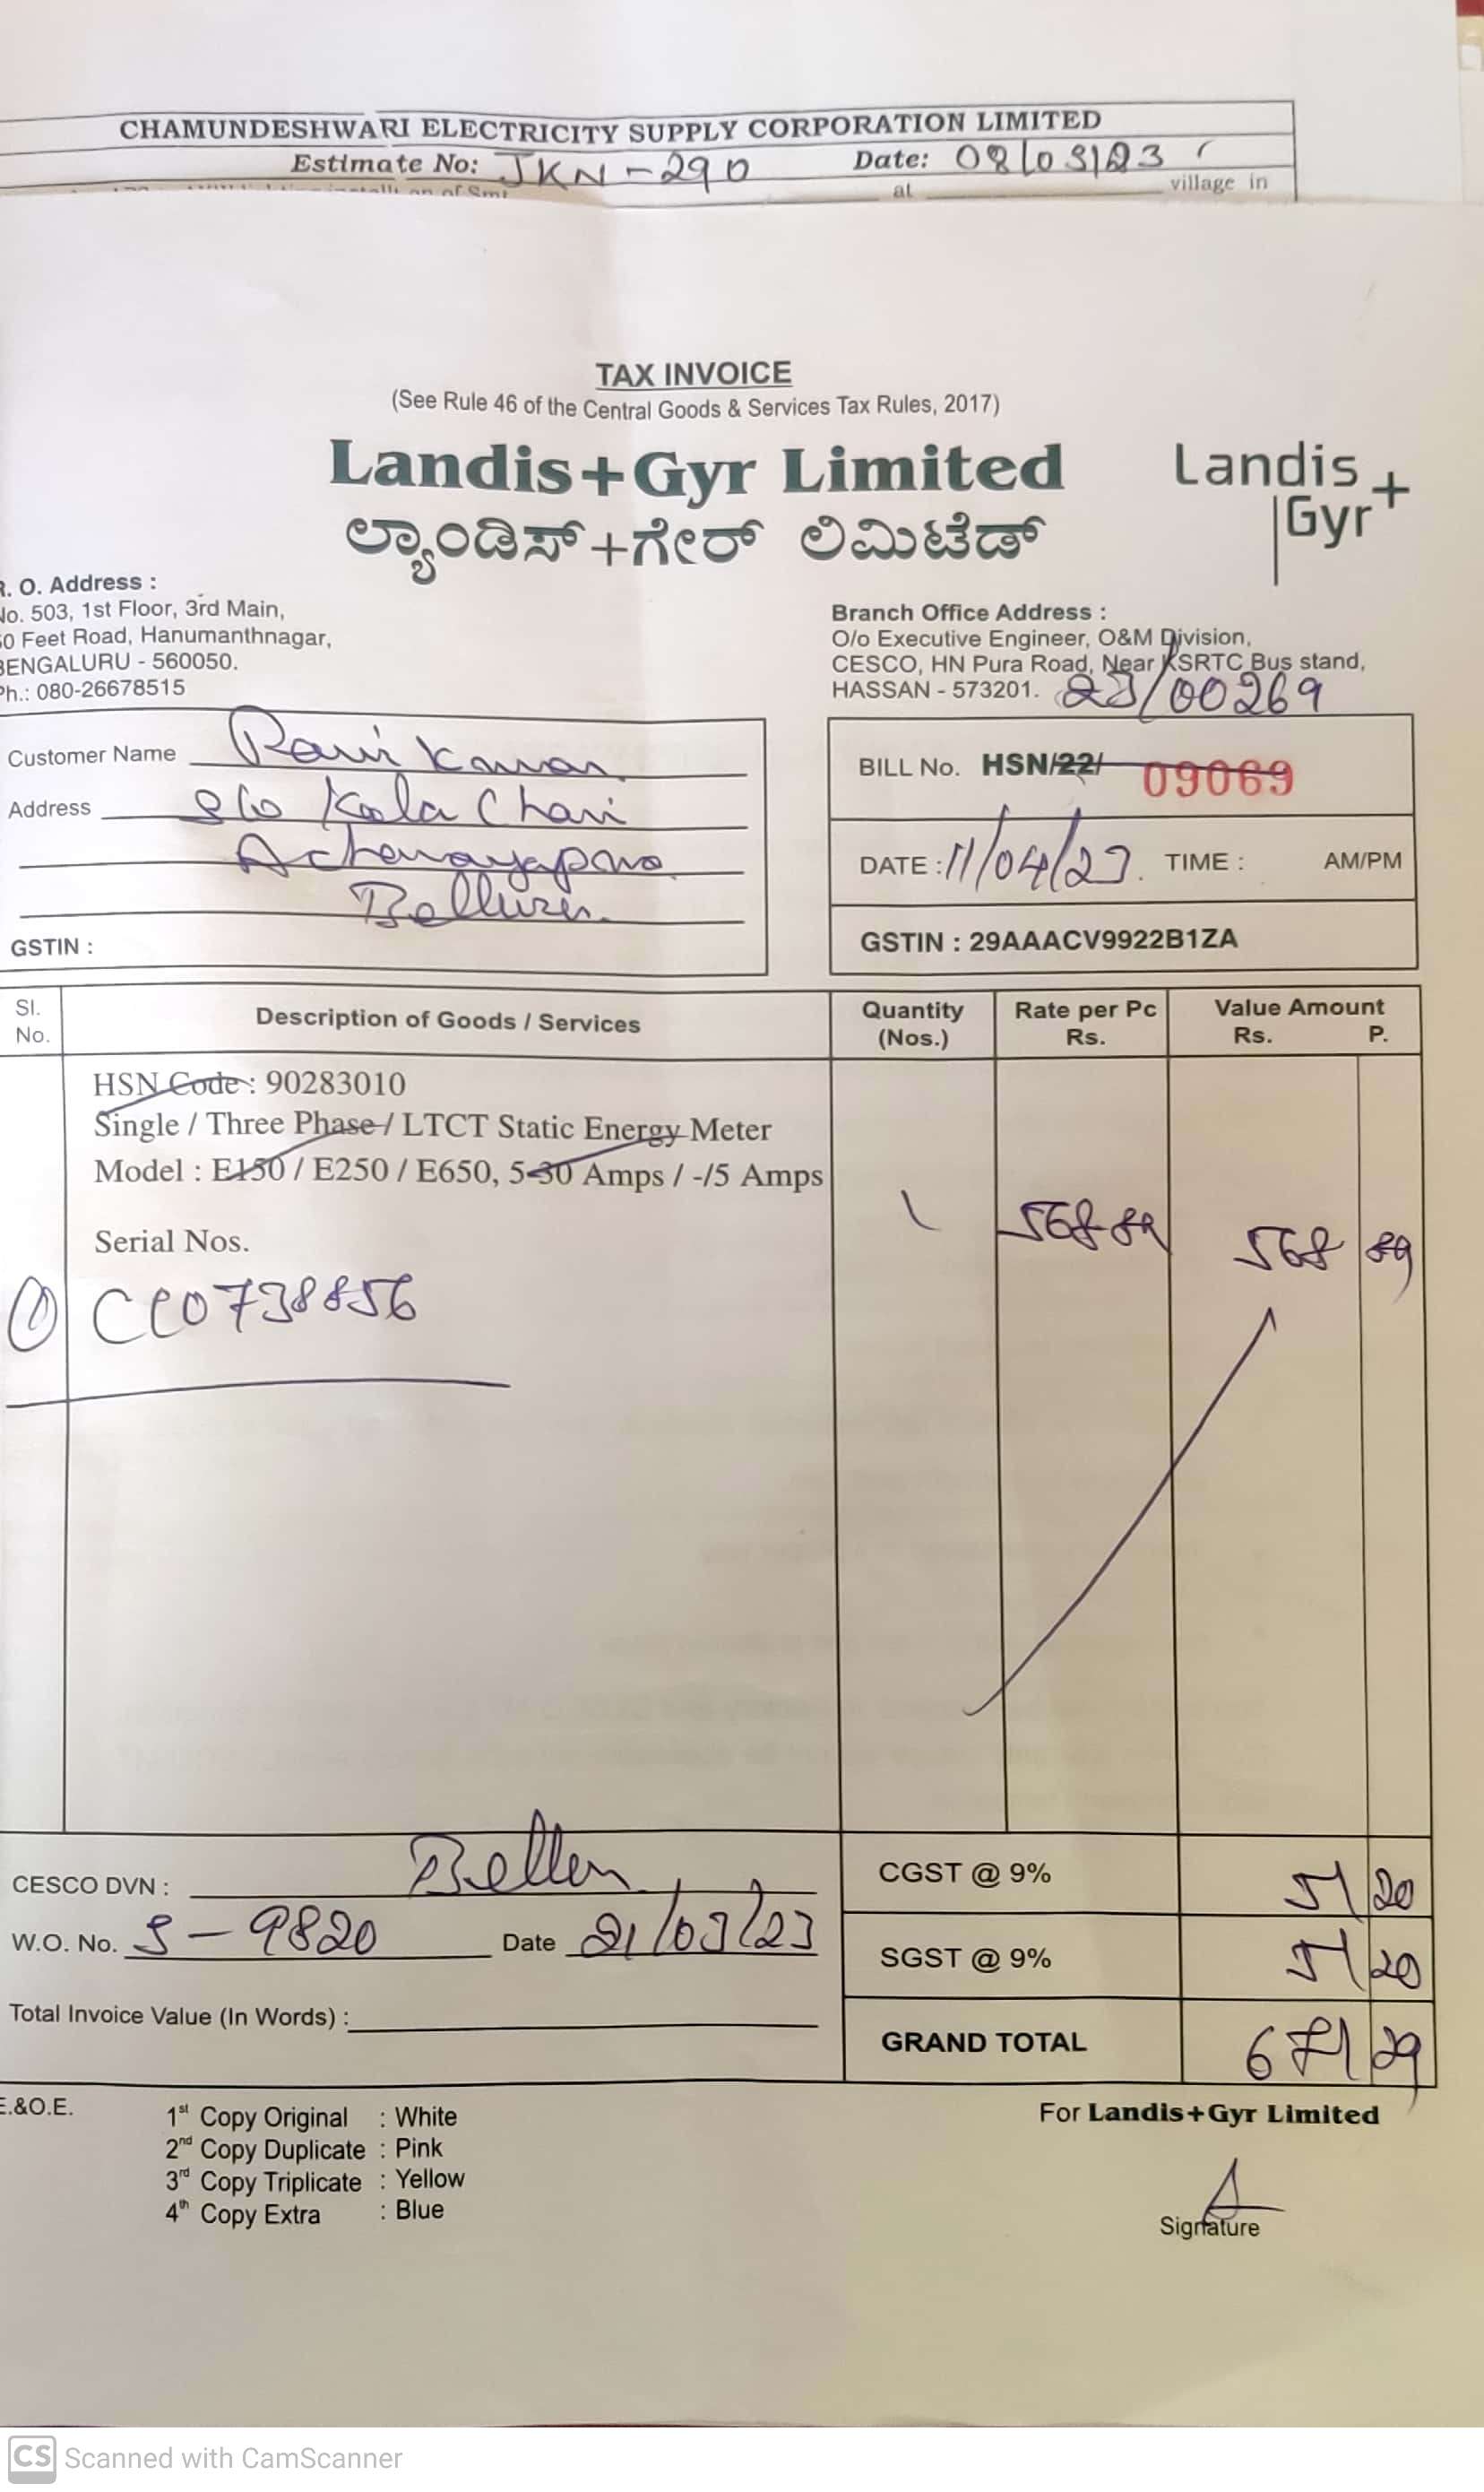 CHAMUNDESHWARI ELECTRICITY SUPPLY CORPORATION LIMITED
Estimate No: JKN-290 Date: 08/03/23
at village in
TAX INVOICE
(See Rule 46 of the Central Goods & Services Tax Rules, 2017)
Landis+Gyr Limited
Landis+Gyr
ಲ್ಯಾಂಡಿಸ್+ಗೇರ್ ಲಿಮಿಟೆಡ್
R. O. Address :
No. 503, 1st Floor, 3rd Main,
0 Feet Road, Hanumanthnagar,
BENGALURU - 560050.
Ph.: 080-26678515
Branch Office Address :
O/o Executive Engineer, O&M Division,
CESCO, HN Pura Road, Near KSRTC Bus stand,
HASSAN - 573201.
23/00269
Customer Name Ravi Kumar
Address S/o Kala Chari
GSTIN :
BILL No. HSN/22/ 09069
DATE : 11/04/23. TIME : AM/PM
GSTIN : 29AAACV9922B1ZA
Sl. No. Description of Goods / Services Quantity (Nos.) Rate per Pc Rs. Value Amount Rs. P.
HSN Code : 90283010
Single / Three Phase / LTCT Static Energy Meter
Model : E150 / E250 / E650, 5-30 Amps / -/5 Amps
1 568-89 568 89
Serial Nos.
1 CC0738856
CESCO DVN :
W.O. No. S-9820 Date 21/03/23
Total Invoice Value (In Words) :
CGST @ 9% 51 20
SGST @ 9% 51 20
GRAND TOTAL 671 29
E.&O.E.
1st Copy Original : White
2nd Copy Duplicate : Pink
3rd Copy Triplicate : Yellow
4th Copy Extra : Blue
For Landis+Gyr Limited
Signature
CS Scanned with CamScanner